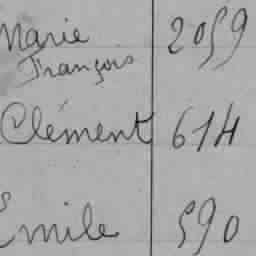 Marie 2059
François
Clément 614
Emile 590